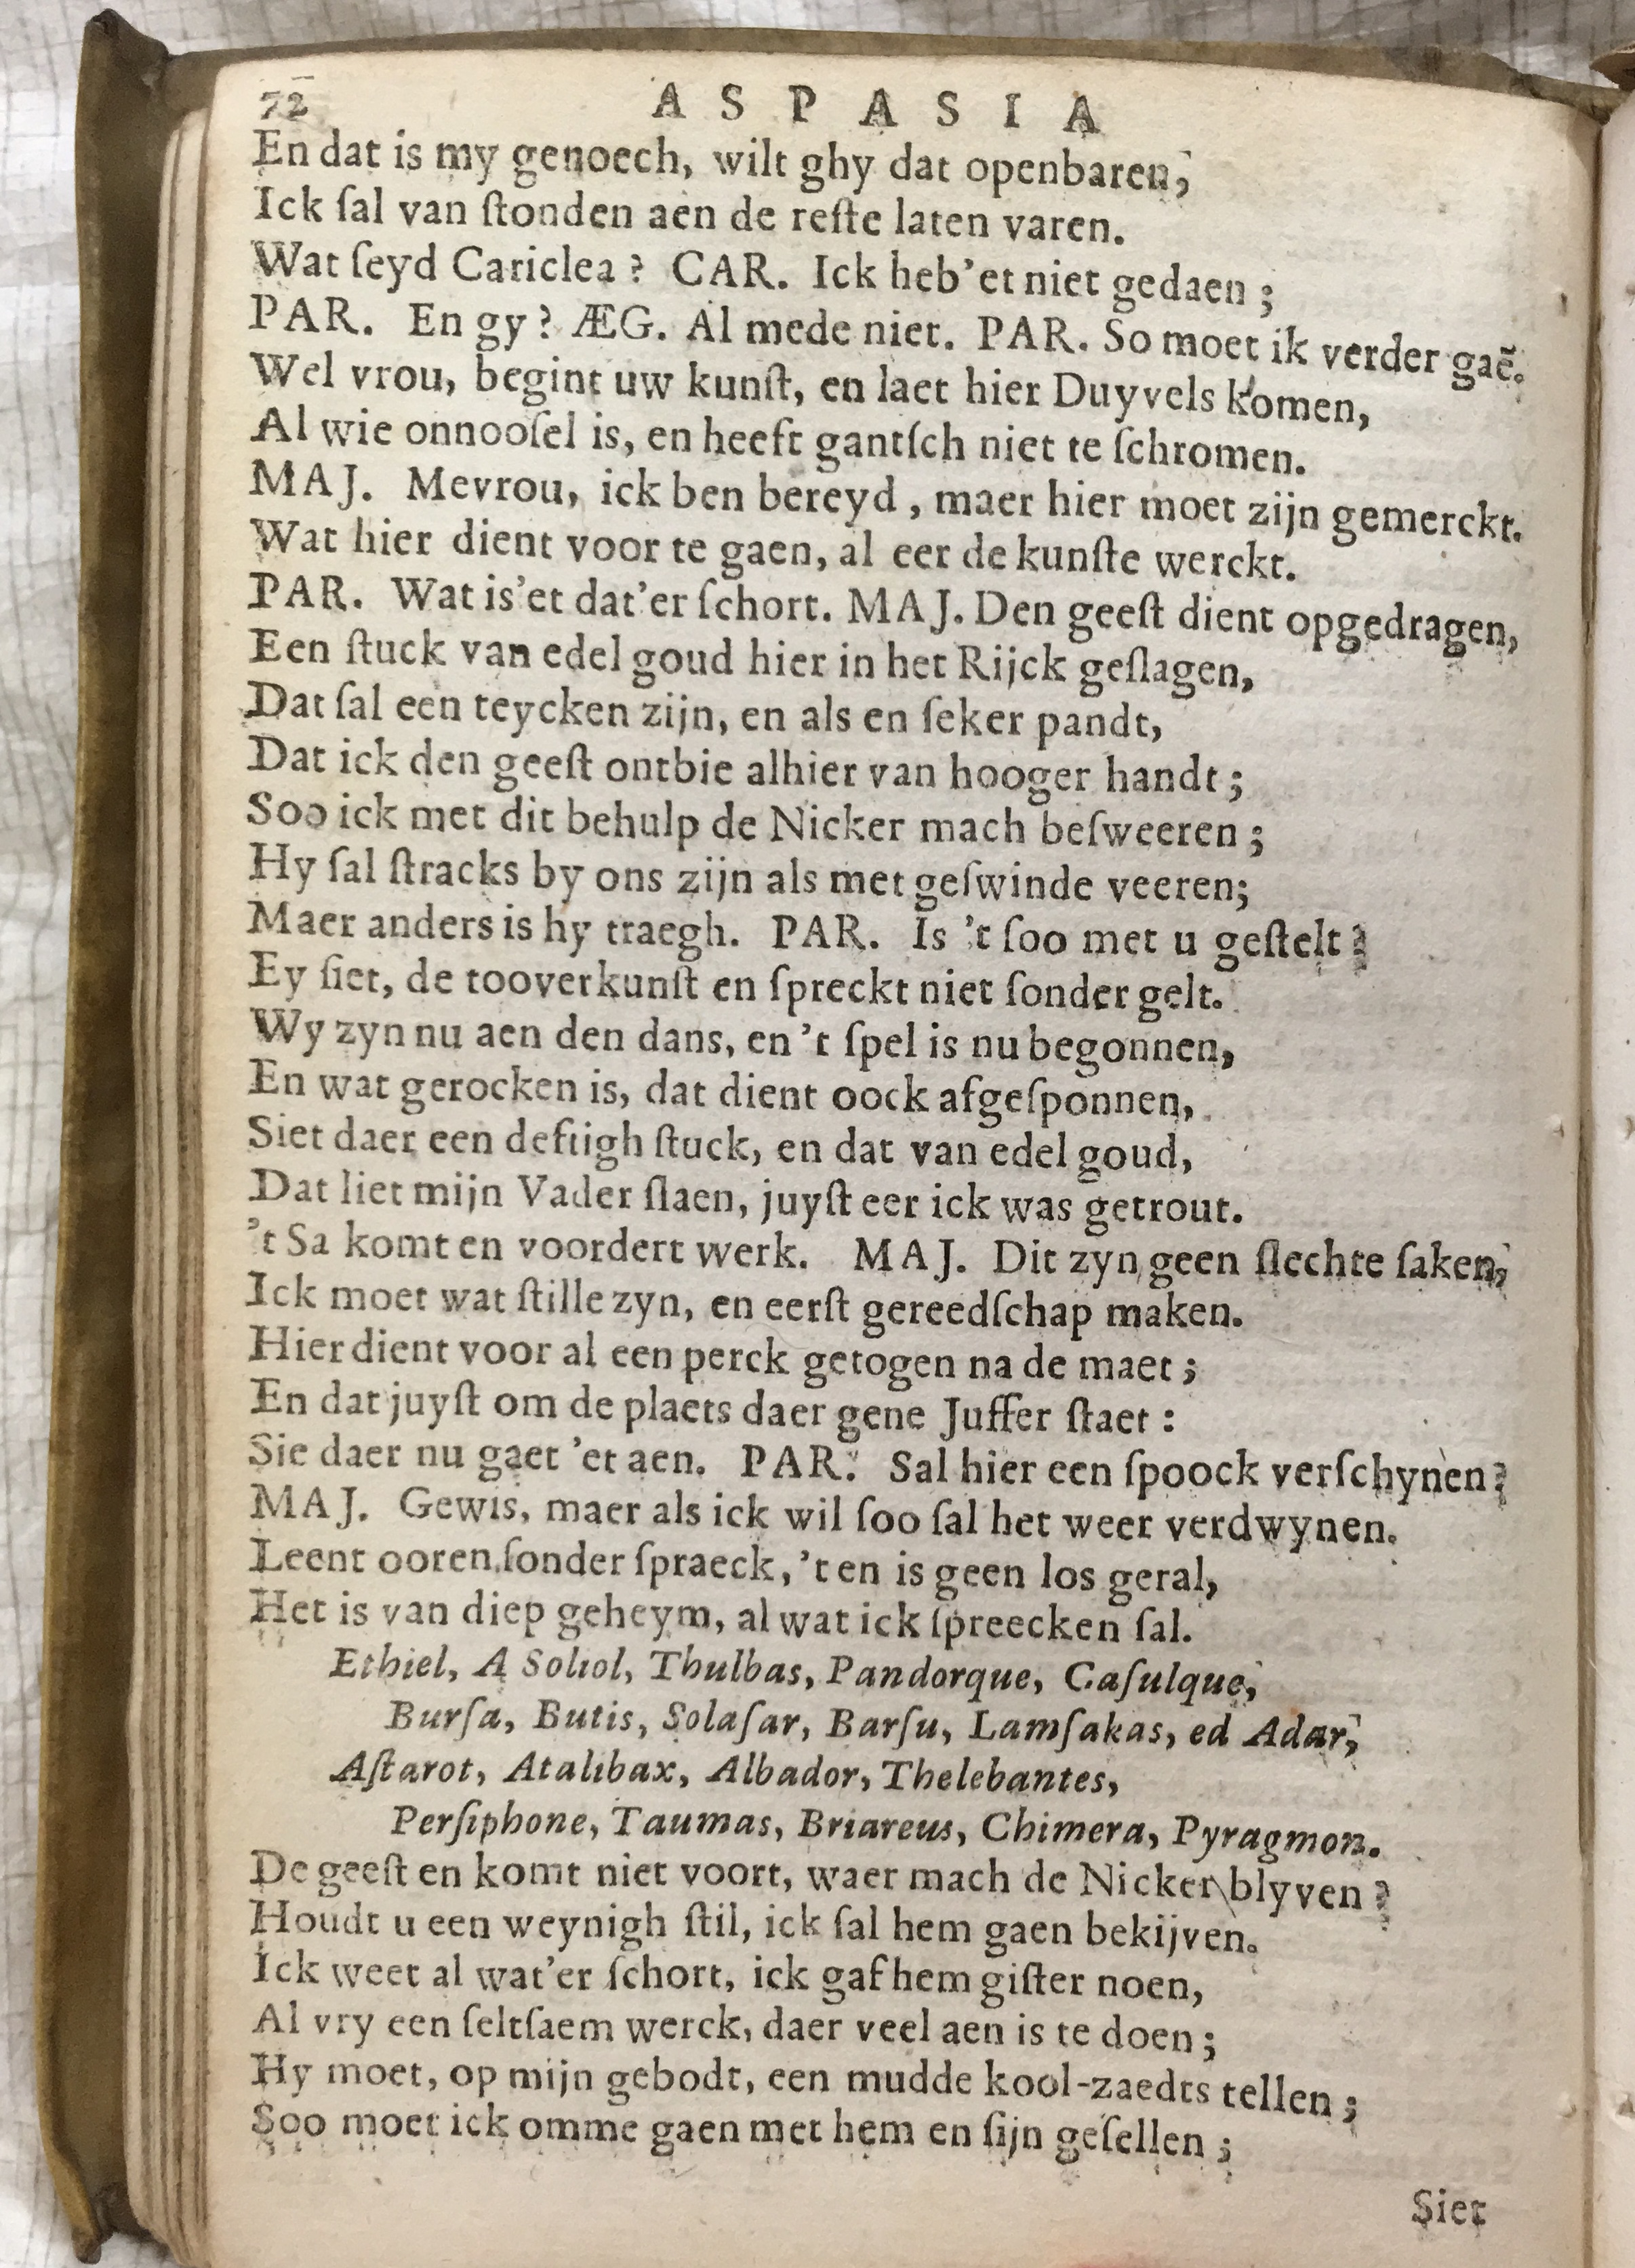 72 ASPASIA
En dat is my genoech, wilt ghy dat openbaren,
Ick ſal van ſtonden aen de reſte laten varen.
Wat ſeyd Cariclea? CAR. Ick heb'et niet gedaen;
PAR. En gy? ÆG. Al mede niet. PAR. So moet ik verder gaẽ.
Wel vrou, begint uw kunſt, en laet hier Duyvels komen,
Al wie onnooſel is, en heeft gantſch niet te ſchromen.
MAJ. Mevrou, ick ben bereyd, maer hier moet zijn gemerckt.
Wat hier dient voor te gaen, al eer de kunſte werckt.
PAR. Wat is'et dat'er ſchort. MAJ. Den geeſt dient opgedragen,
Een ſtuck van edel goud hier in het Rijck geſlagen,
Dat ſal een teycken zijn, en als en ſeker pandt,
Dat ick den geeſt ontbie alhier van hooger handt;
Soo ick met dit behulp de Nicker mach beſweeren;
Hy ſal ſtracks by ons zijn als met geſwinde veeren;
Maer anders is hy traegh. PAR. Is 't ſoo met u geſtelt?
Ey ſiet, de tooverkunſt en ſpreckt niet ſonder gelt.
Wy zyn nu aen den dans, en 't ſpel is nu begonnen,
En wat gerocken is, dat dient oock afgeſponnen,
Siet daer een deftigh ſtuck, en dat van edel goud,
Dat liet mijn Vader ſlaen, juyſt eer ick was getrout.
't Sa komt en voordert werk. MAJ. Dit zyn geen ſlechte ſaken,
Ick moet wat ſtille zyn, en eerſt gereedſchap maken.
Hier dient voor al een perck getogen na de maet;
En dat juyſt om de plaets daer gene Juffer ſtaet:
Sie daer nu gaet 'et aen. PAR. Sal hier een ſpoock verſchynen?
MAJ. Gewis, maer als ick wil ſoo ſal het weer verdwynen.
Leent ooren ſonder ſpraeck, 't en is geen los geral,
Het is van diep geheym, al wat ick ſpreecken ſal.
Ethiel, A Soliol, Thulbas, Pandorque, Caſulque,
Burſa, Butis, Solaſar, Barſu, Lamſakas, ed Adar,
Aſtarot, Atalibax, Albador, Thelebantes,
Perſiphone, Taumas, Briareus, Chimera, Pyragmon.
De geeſt en komt niet voort, waer mach de Nicker blyven?
Houdt u een weynigh ſtil, ick ſal hem gaen bekijven.
Ick weet al wat'er ſchort, ick gaf hem giſter noen,
Al vry een ſeltſaem werck, daer veel aen is te doen;
Hy moet, op mijn gebodt, een mudde kool-zaedts tellen;
Soo moet ick omme gaen met hem en ſijn geſellen;
Siet